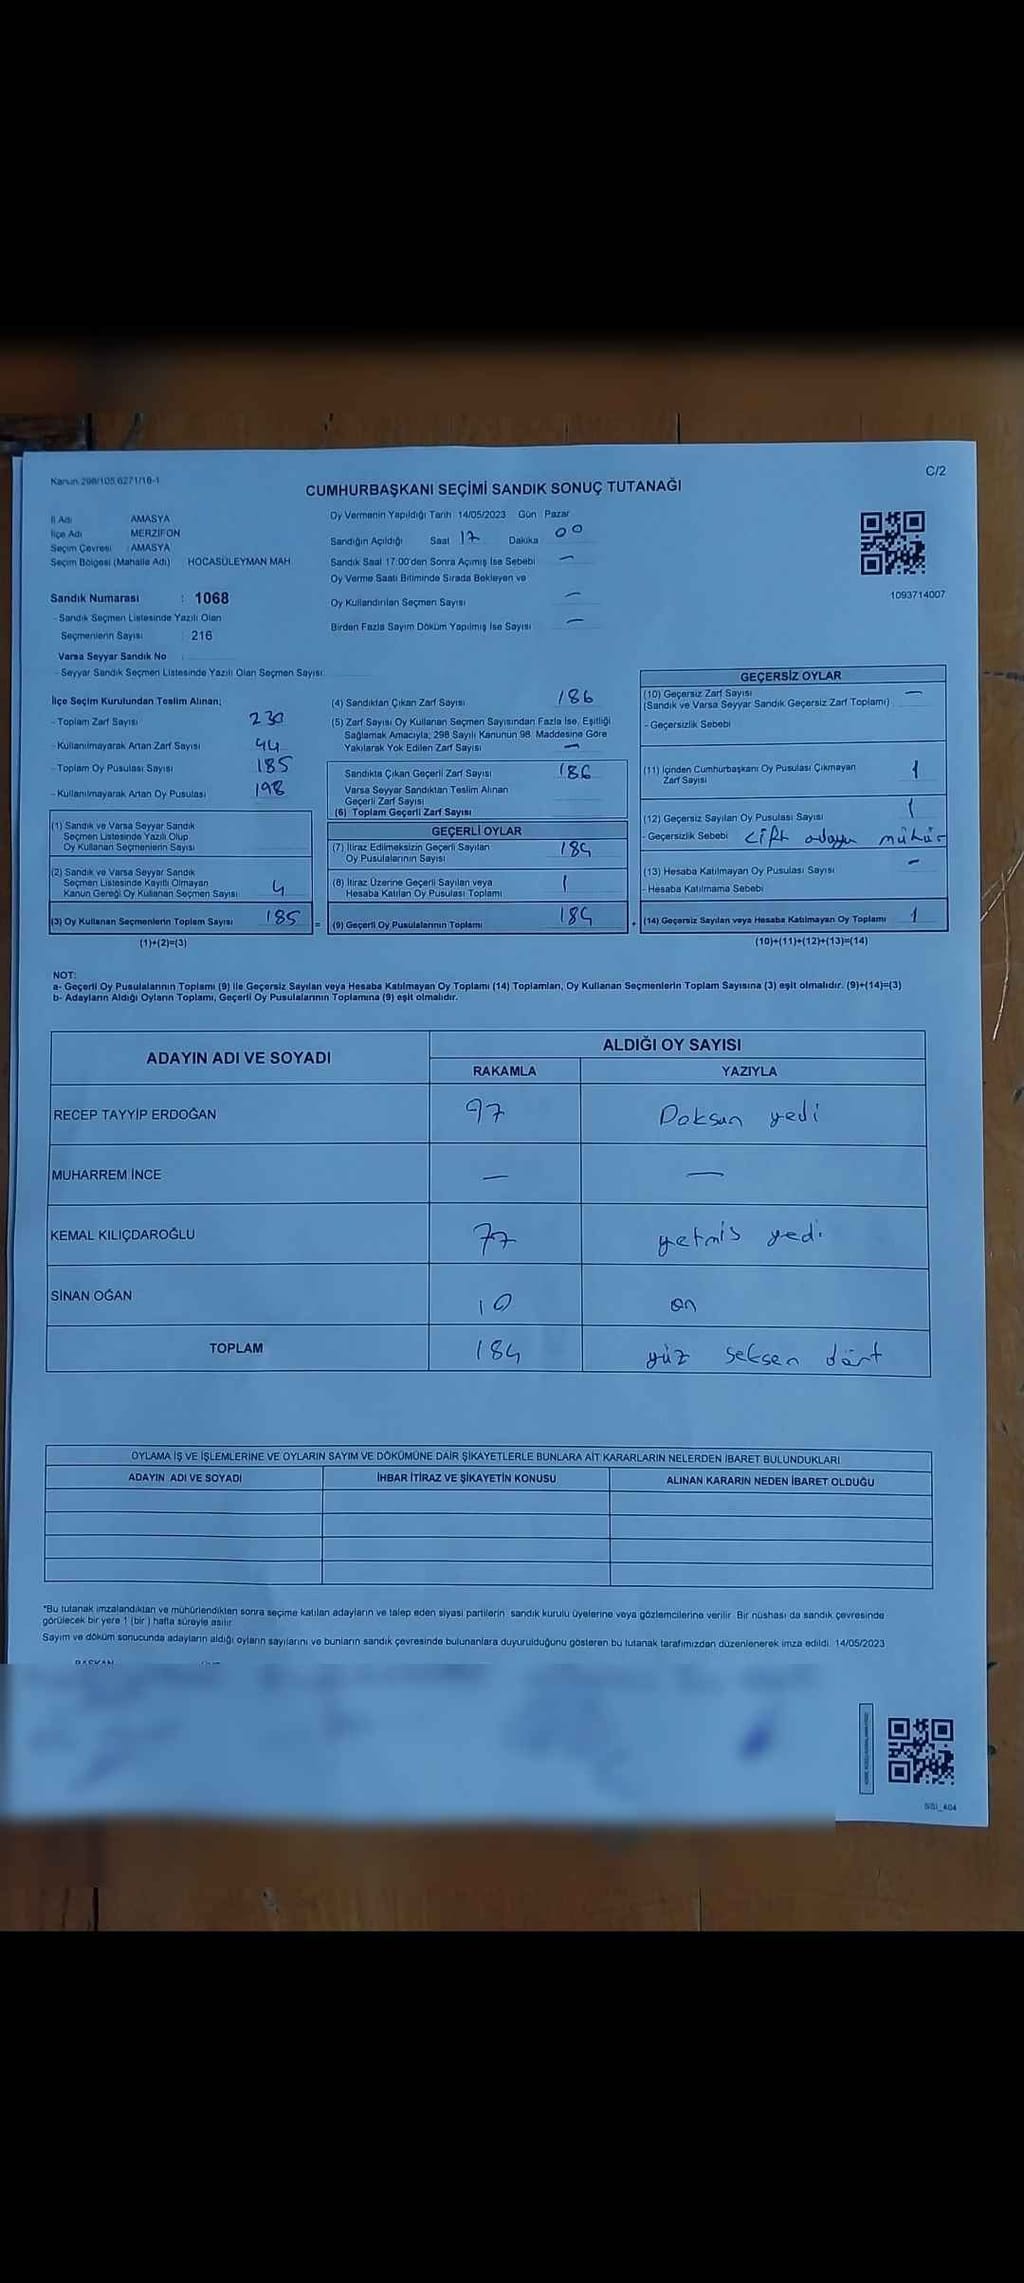 Kanun 298/105,6271/16-1
C/2
CUMHURBAŞKANI SEÇİMİ SANDIK SONUÇ TUTANAĞI
İl Adı AMASYA
İlçe Adı MERZİFON
Seçim Çevresi AMASYA
Seçim Bölgesi (Mahalle Adı) HOCASÜLEYMAN MAH
Oy Vermenin Yapıldığı Tarih 14/05/2023 Gün Pazar
Sandığın Açıldığı Saat 17 Dakika 00
Sandık Saat 17:00'den Sonra Açımış İse Sebebi —
Oy Verme Saati Bitiminde Sırada Bekleyen ve
Oy Kullandırılan Seçmen Sayısı —
Birden Fazla Sayım Döküm Yapılmış İse Sayısı —
1093714007
Sandık Numarası : 1068
- Sandık Seçmen Listesinde Yazılı Olan
Seçmenlerin Sayısı : 216
Varsa Seyyar Sandık No
- Seyyar Sandık Seçmen Listesinde Yazılı Olan Seçmen Sayısı
İlçe Seçim Kurulundan Teslim Alınan;
- Toplam Zarf Sayısı 230
- Kullanılmayarak Artan Zarf Sayısı 44
- Toplam Oy Pusulası Sayısı 185
- Kullanılmayarak Artan Oy Pusulası 198
(1) Sandık ve Varsa Seyyar Sandık
Seçmen Listesinde Yazılı Olup
Oy Kullanan Seçmenlerin Sayısı
(2) Sandık ve Varsa Seyyar Sandık
Seçmen Listesinde Kayıtlı Olmayan
Kanun Gereği Oy Kullanan Seçmen Sayısı 4
(3) Oy Kullanan Seçmenlerin Toplam Sayısı 185 =
(1)+(2)=(3)
(4) Sandıktan Çıkan Zarf Sayısı 186
(5) Zarf Sayısı Oy Kullanan Seçmen Sayısından Fazla İse, Eşitliği
Sağlamak Amacıyla, 298 Sayılı Kanunun 98. Maddesine Göre
Yakılarak Yok Edilen Zarf Sayısı —
Sandıkta Çıkan Geçerli Zarf Sayısı 186
Varsa Seyyar Sandıktan Teslim Alınan
Geçerli Zarf Sayısı
(6) Toplam Geçerli Zarf Sayısı
GEÇERLİ OYLAR
(7) İtiraz Edilmeksizin Geçerli Sayılan
Oy Pusulalarının Sayısı 184
(8) İtiraz Üzerine Geçerli Sayılan veya
Hesaba Katılan Oy Pusulası Toplamı 1
(9) Geçerli Oy Pusulalarının Toplamı 184 +
GEÇERSİZ OYLAR
(10) Geçersiz Zarf Sayısı —
(Sandık ve Varsa Seyyar Sandık Geçersiz Zarf Toplamı)
- Geçersizlik Sebebi
(11) İçinden Cumhurbaşkanı Oy Pusulası Çıkmayan
Zarf Sayısı 1
(12) Geçersiz Sayılan Oy Pusulası Sayısı 1
- Geçersizlik Sebebi çift adaya mühür
(13) Hesaba Katılmayan Oy Pusulası Sayısı —
- Hesaba Katılmama Sebebi
(14) Geçersiz Sayılan veya Hesaba Katılmayan Oy Toplamı 1
(10)+(11)+(12)+(13)=(14)
NOT:
a- Geçerli Oy Pusulalarının Toplamı (9) ile Geçersiz Sayılan veya Hesaba Katılmayan Oy Toplamı (14) Toplamları, Oy Kullanan Seçmenlerin Toplam Sayısına (3) eşit olmalıdır. (9)+(14)=(3)
b- Adayların Aldığı Oyların Toplamı, Geçerli Oy Pusulalarının Toplamına (9) eşit olmalıdır.
ADAYIN ADI VE SOYADI ALDIĞI OY SAYISI
RAKAMLA YAZIYLA
RECEP TAYYİP ERDOĞAN 97 Doksan yedi
MUHARREM İNCE — —
KEMAL KILIÇDAROĞLU 77 yetmis yedi
SİNAN OĞAN 10 on
TOPLAM 184 yüz seksen dört
OYLAMA İŞ VE İŞLEMLERİNE VE OYLARIN SAYIM VE DÖKÜMÜNE DAİR ŞİKAYETLERLE BUNLARA AİT KARARLARIN NELERDEN İBARET BULUNDUKLARI
ADAYIN ADI VE SOYADI İHBAR İTİRAZ VE ŞİKAYETİN KONUSU ALINAN KARARIN NEDEN İBARET OLDUĞU
*Bu tutanak imzalandıktan ve mühürlendikten sonra seçime katılan adayların ve talep eden siyasi partilerin sandık kurulu üyelerine veya gözlemcilerine verilir. Bir nüshası da sandık çevresinde
görülecek bir yere 1 (bir) hafta süreyle asılır.
Sayım ve döküm sonucunda adayların aldığı oyların sayılarını ve bunların sandık çevresinde bulunanlara duyurulduğunu gösteren bu tutanak tarafımızdan düzenlenerek imza edildi. 14/05/2023
BAŞKAN